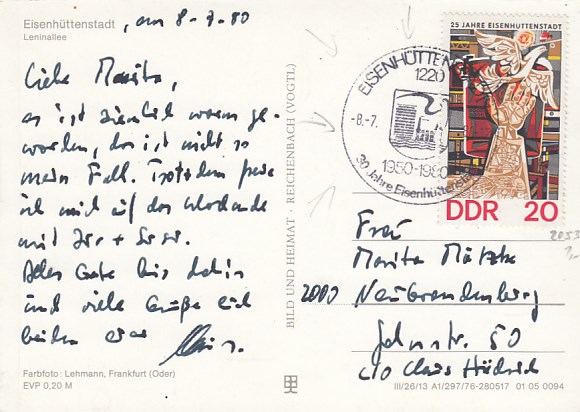 Eisenhüttenstadt, am 8-7.80
Leninallee
Liebe Marita,
es ist ziemlich warm ge-
worden, das ist nicht so
mein Fall. Trotzdem freue
ich mich auf das Wochende
mit
Alles Gute bis dahin
und viele Grüße euch
beiden
Farbfoto: Lehmann, Frankfurt (Oder)
EVP 0,20 M
BILD UND HEIMAT · REICHENBACH (VOGTL)
EISENHÜTTEN
1220
-8.-7.
1950-1980
30 Jahre Eisenhütten
25 JAHRE EISENHÜTTENSTADT
DDR 20
2053
Frau
Marita
2000 Neubrandenburg
Jahnstr. 50
c/o Claus
III/26/13 A1/297/76-280517 01 05 0094